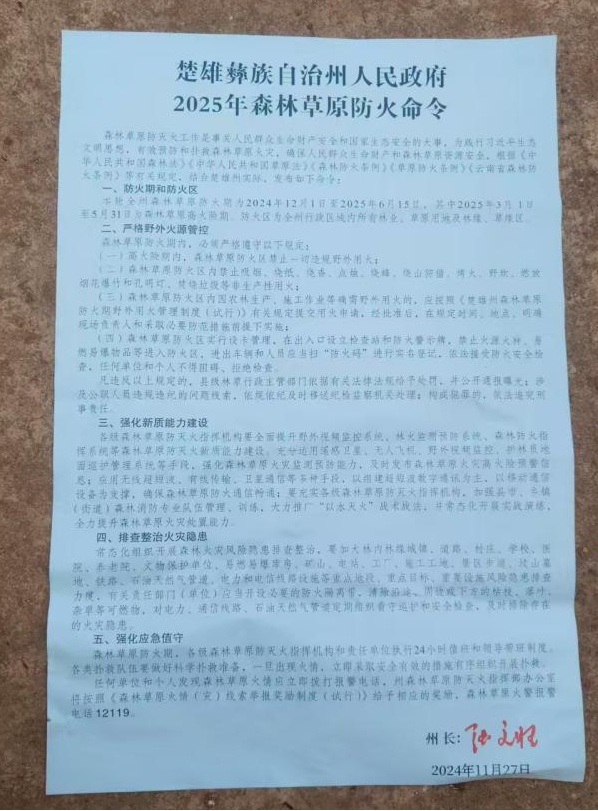 楚雄彝族自治州人民政府
2025年森林草原防火命令
森林草原防灭火工作是事关人民群众生命财产安全和国家生态安全的大事，为践行习近平生态
文明思想，有效预防和扑救森林草原火灾，确保人民群众生命财产和森林草原资源安全，根据《中
华人民共和国森林法》《中华人民共和国草原法》《森林防火条例》《草原防火条例》《云南省森林防
火条例》等有关规定，结合楚雄州实际，发布如下命令：
一、防火期和防火区
本轮全州森林草原防火期为2024年12月1日至2025年6月15日，其中2025年3月1日
至5月31日为森林草原高火险期。防火区为全州行政区域内所有林业、草原用地及林缘、草缘区。
二、严格野外火源管控
森林草原防火期内，必须严格遵守以下规定：
（一）高火险期内，森林草原防火区禁止一切违规野外用火；
（二）森林草原防火区内禁止吸烟、烧纸、烧香、点烛、烧蜂、烧山狩猎、烤火、野炊、燃放
烟花爆竹和孔明灯、焚烧垃圾等非生产性用火；
（三）森林草原防火区内因农林生产、施工作业等确需野外用火的，应按照《楚雄州森林草原
防火期野外用火管理制度（试行）》有关规定提交用火申请，经批准后，在规定时间、地点、明确
现场负责人和采取必要防范措施前提下实施；
（四）森林草原防火区实行设卡管理，在出入口设立检查站和防火警示牌，禁止火源火种、易
燃易爆物品等进入防火区，进出车辆和人员应当扫“防火码”进行实名登记，依法接受防火安全检
查，任何单位和个人不得阻碍、拒绝检查。
凡违反以上规定的，县级林草行政主管部门依据有关法律法规给予处罚，并公开通报曝光；涉
及公职人员违规违纪的问题线索，依规依纪及时移送纪检监察机关处理；构成犯罪的，依法追究刑
事责任。
三、强化新质能力建设
各级森林草原防灭火指挥机构要全面提升野外视频监控系统、林火监测预防系统、森林防火指
挥系统等森林草原防灭火新质能力建设，充分运用遥感卫星、无人飞机、野外视频监控、护林员地
面巡护管理系统等手段，强化森林草原火灾监测预防能力，及时发布森林草原火灾高火险预警信
息；应用无线超短波、有线传输、卫星通信等多种手段，以组建超短波数字通讯为主，以移动通信
设备为支撑，确保森林草原防火通信畅通；要充实各级森林草原防灭火指挥机构，加强县市、乡镇
（街道）森林消防专业队伍管理、训练，大力推广“以水灭火”战术战法，并常态化开展实战演练，
全力提升森林草原火灾处置能力。
四、排查整治火灾隐患
常态化组织开展森林火灾风险隐患排查整治，要加大林内林缘城镇、道路、村庄、学校、医
院、养老院、文物保护单位、易燃易爆库房、矿山、电站、工厂、施工工地、景区步道、坟山墓
地、铁路、石油天然气管道、电力和电信线路设施等重点地段、重点目标、重要设施风险隐患排查
力度，有关责任部门（单位）应当开设必要的防火隔离带，清除沿途、周边或下方的枯枝、落叶、
杂草等可燃物，对电力、通信线路、石油天然气管道定期组织看守巡护和安全检查，及时排除存在
的火灾隐患。
五、强化应急值守
森林草原防火期，各级森林草原防灭火指挥机构和责任单位执行24小时值班和领导带班制度。
各类扑救队伍要做好科学扑救准备，一旦出现火情，立即采取安全有效的措施有序组织开展扑救。
任何单位和个人发现森林草原火情应立即拨打报警电话，州森林草原防灭火指挥部办公室
将按照《森林草原火情（灾）线索举报奖励制度（试行）》给予相应的奖励，森林草原火警报警
电话12119。
州长：
2024年11月27日